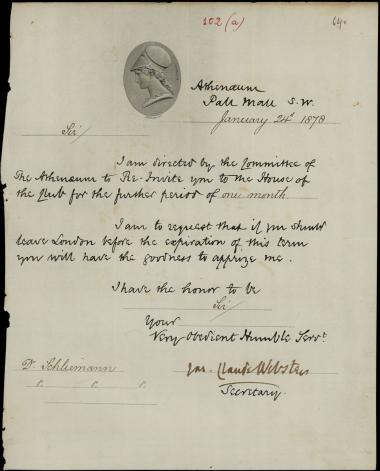 102 (a)
64.
Athenæum
Pall Mall S.W.
January 24th 1878
Sir/
I am directed by the Committee of
The Athenæum to Re-Invite you to the House of
the Club for the further period of one month
I am to request that if you should
leave London before the expiration of this term
you will have the goodness to apprize me.
I have the honor to be
Sir/
Your
Very Obedient Humble Servt.
Dr. Schliemann
Jas. Claude Webster
Secretary.